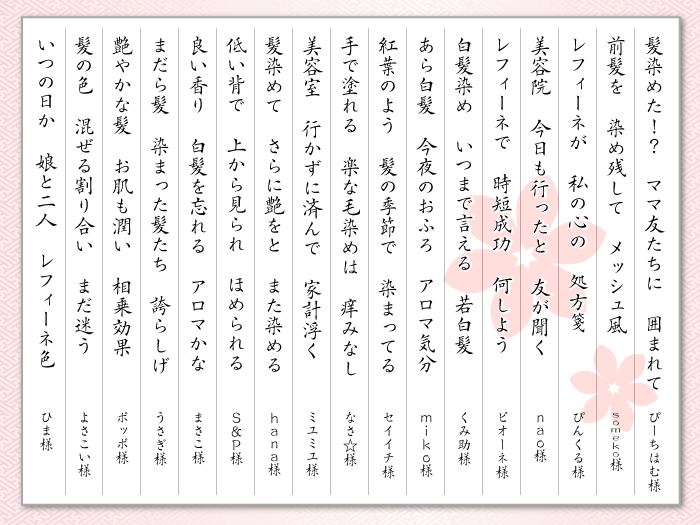 髪染めた!? ママ友たちに 囲まれて ぴーちはむ様
前髪を 染め残して メッシュ風 someko様
レフィーネが 私の心の 処方箋 ぴんくる様
美容院 今日も行ったと 友が聞く nao様
レフィーネで 時短成功 何しよう ピオーネ様
白髪染め いつまで言える 若白髪 くみ助様
あら白髪 今夜のおふろ アロマ気分 miko様
紅葉のよう 髪の季節で 染まってる セイイチ様
手で塗れる 楽な毛染めは 痒みなし なさ☆様
美容室 行かずに済んで 家計浮く ミユミユ様
髪染めて さらに艶をと また染める hana様
低い背で 上から見られ ほめられる S&P様
良い香り 白髪を忘れる アロマかな まさこ様
まだら髪 染まった髪たち 誇らしげ うさぎ様
艶やかな髪 お肌も潤い 相乗効果 ポッポ様
髪の色 混ぜる割り合い まだ迷う よさこい様
いつの日か 娘と二人 レフィーネ色 ひま様